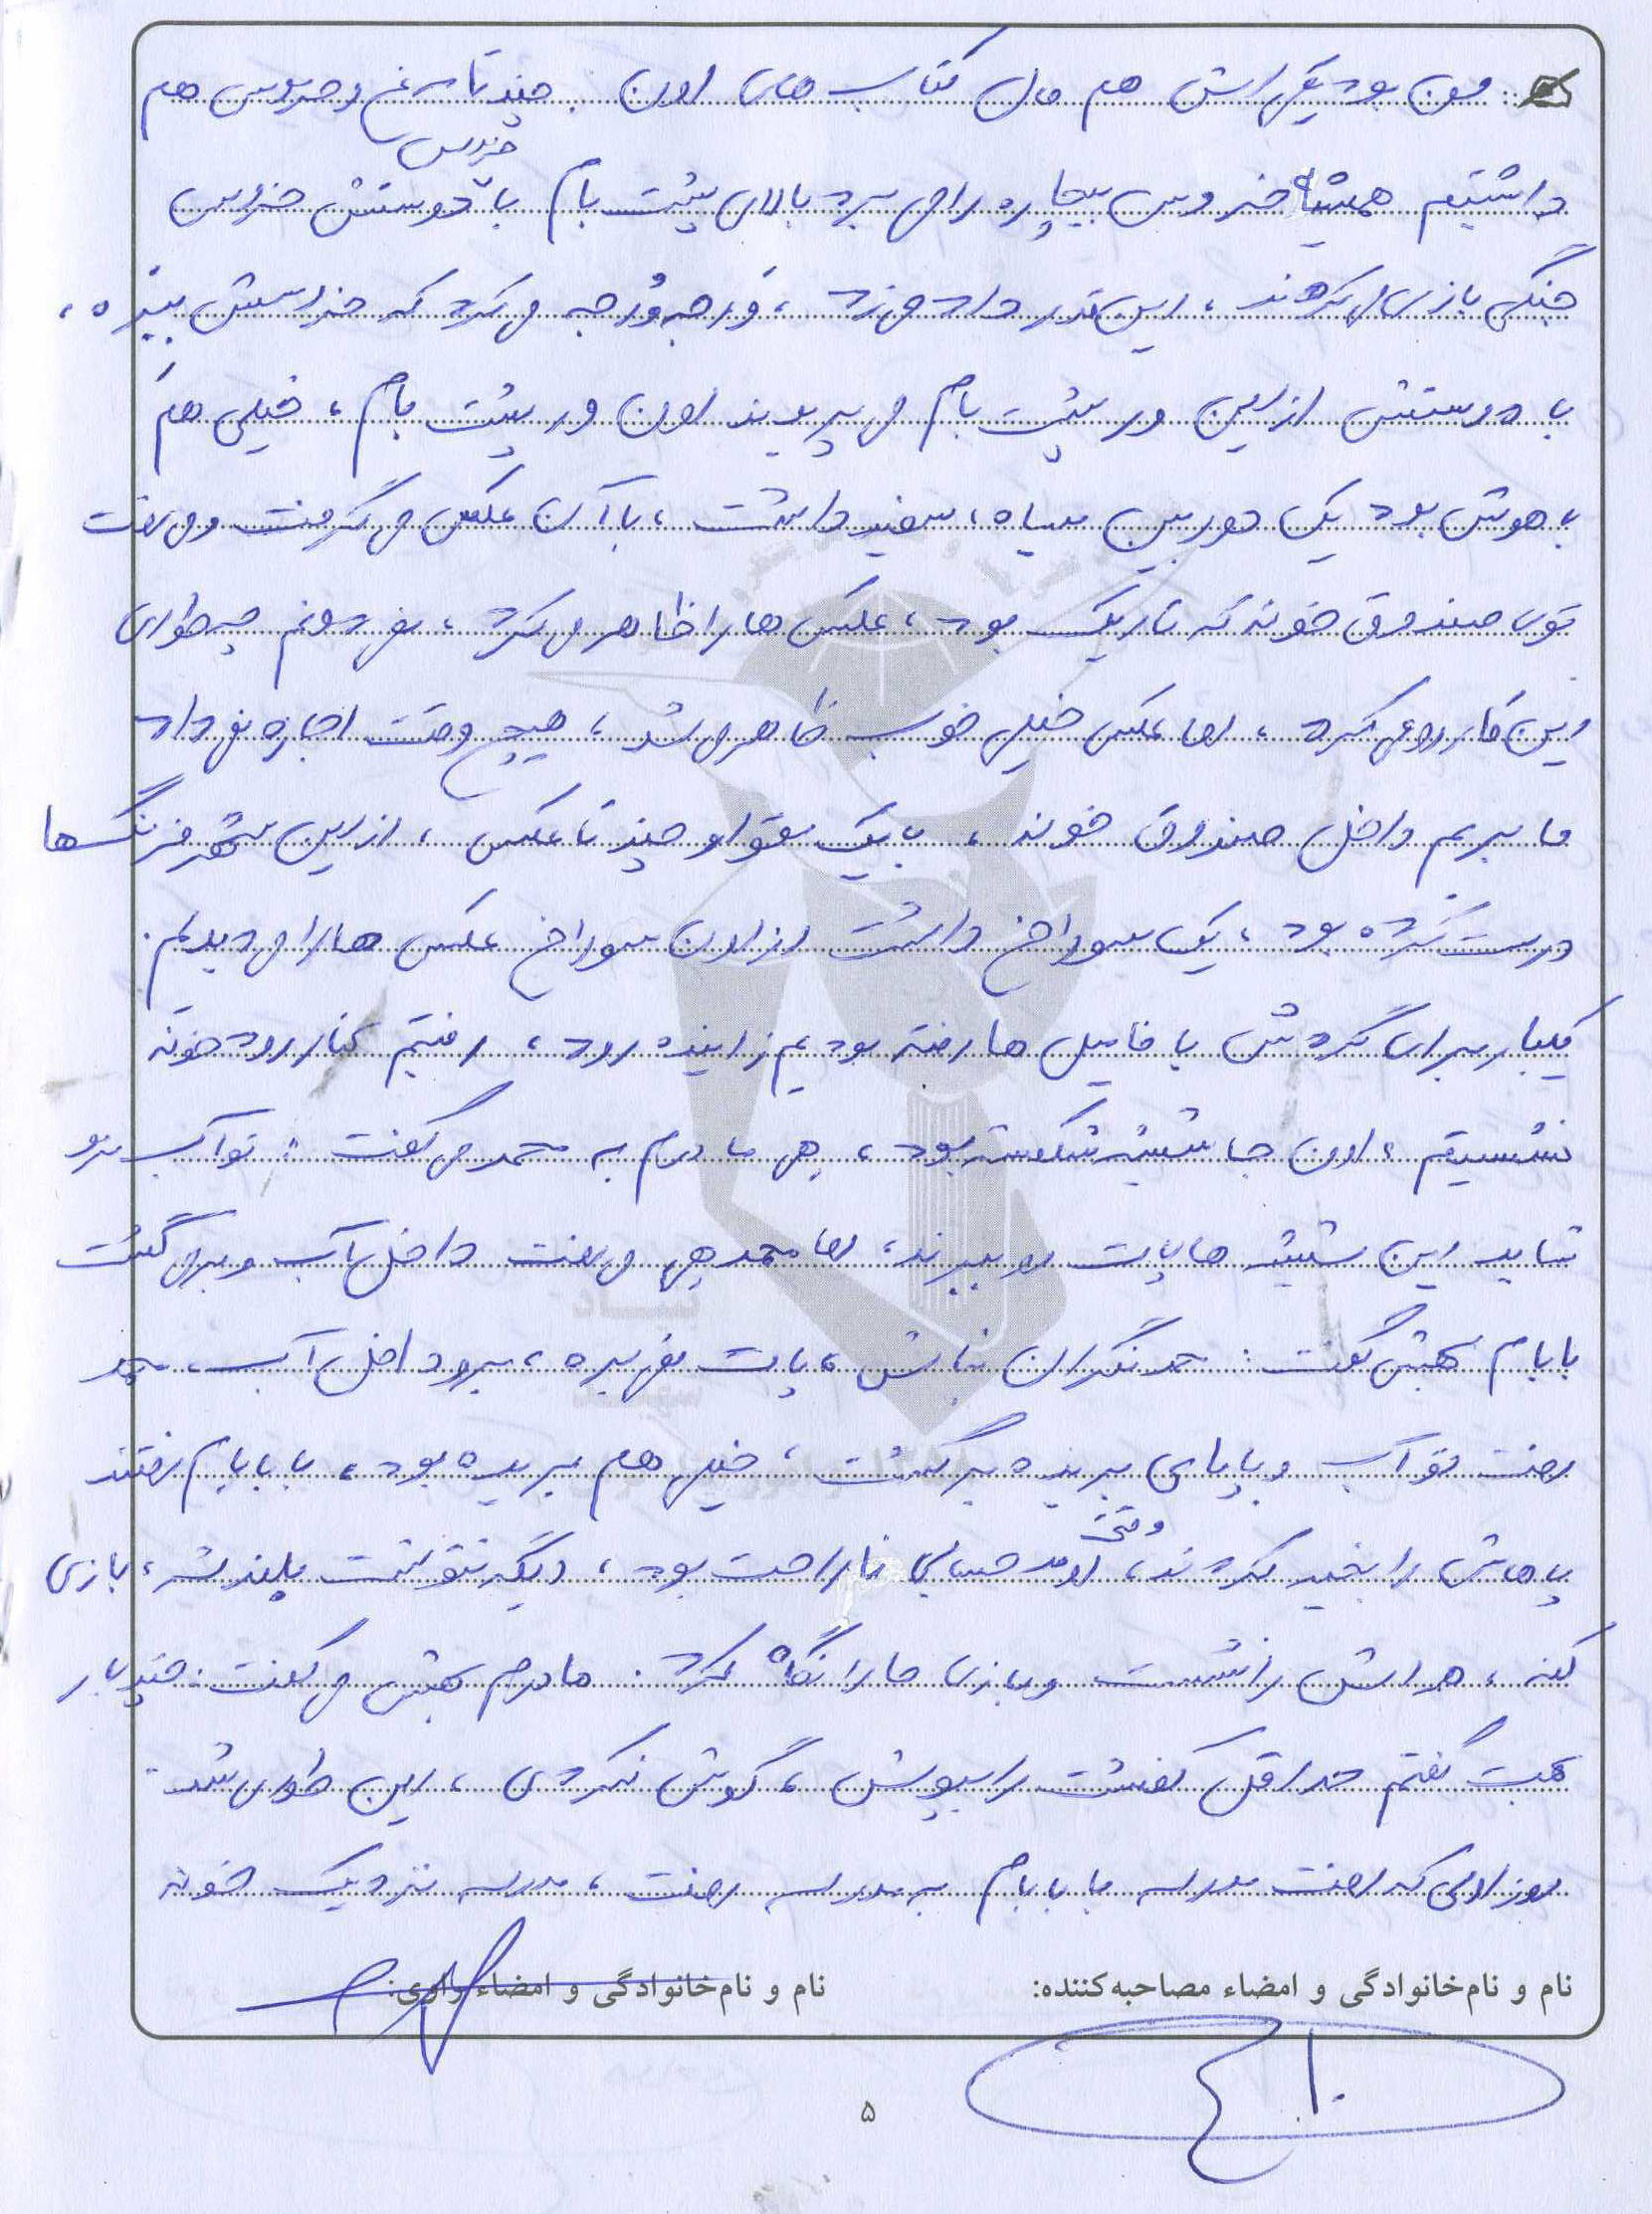 مون بود یکی‌اش هم مال کتاب های اون . چند تا مرغ و خروس هم
خروس
داشتیم همیشه خروس بیچاره را می برد بالای پشت بام با دوستش خروس
جنگی بازی می کردند ، این قدر داد می زد ، وَرجه وُرجه می کرد که خروسش ببره ،
با دوستش از این ور پشت بام می پریدند اون ور پشت بام ، خیلی هم
باهوش بود یک دوربین سیاه ، سفید داشت ، با آن عکس می گرفت و می رفت
توی صندوق خونه که تاریک بود ، عکس ها را ظاهر می کرد ، نمی دونم چه طوری
این کار رو می کرد ، اما عکس خیلی خوب ظاهر می شد ، هیچ وقت اجازه نمی داد
ما بریم داخل صندوق خونه ، با یک مقوا و چند تا عکس ، از این شهر فرنگ ها
درست کرده بود ، یک سوراخ داشت از اون سوراخ عکس ها را می دیدیم .
یکبار برای گردش با فامیل ها رفته بودیم زاینده رود ، رفتیم کنار رودخونه
نشستیم ، اون جا شیشه شکسته بود ، هی مادرم به محمد می گفت : تو آب نرو
شاید این شیشه ها پات رو ببرند ، اما محمد هی می رفت داخل آب و برمی گشت
بابام بهش گفت : محمد نگران نباش ، پات نمی بره ، برو داخل آب ، محمد
رفت تو آب و با پای بریده برگشت ، خیلی هم بریده بود ، با بابام رفتند
پاهاش را بخیه کردند ، وقتی اومد حسابی ناراحت بود ، دیگر نتونست بلند شه ، بازی
کنه ، همه اش نشست و بازی ما را نگاه کرد . مادرم بهش می گفت : چند بار
بهت گفتم حداقل کفشت را بپوش ، گوش نکردی ، این طوری شد .
روز اولی که رفت مدرسه با بابام به مدرسه رفت ، مدرسه نزدیک خونه
نام و نام‌خانوادگی و امضاء مصاحبه‌کننده:
نام و نام‌خانوادگی و امضاء راوی:
۵